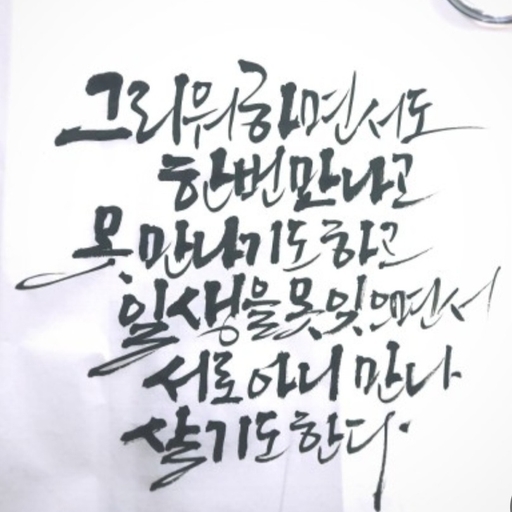 그리워하면서도
한번 만나고
못 만나기도 하고
일생을 못 잊으면서
서로 아니 만나
살기도 한다.